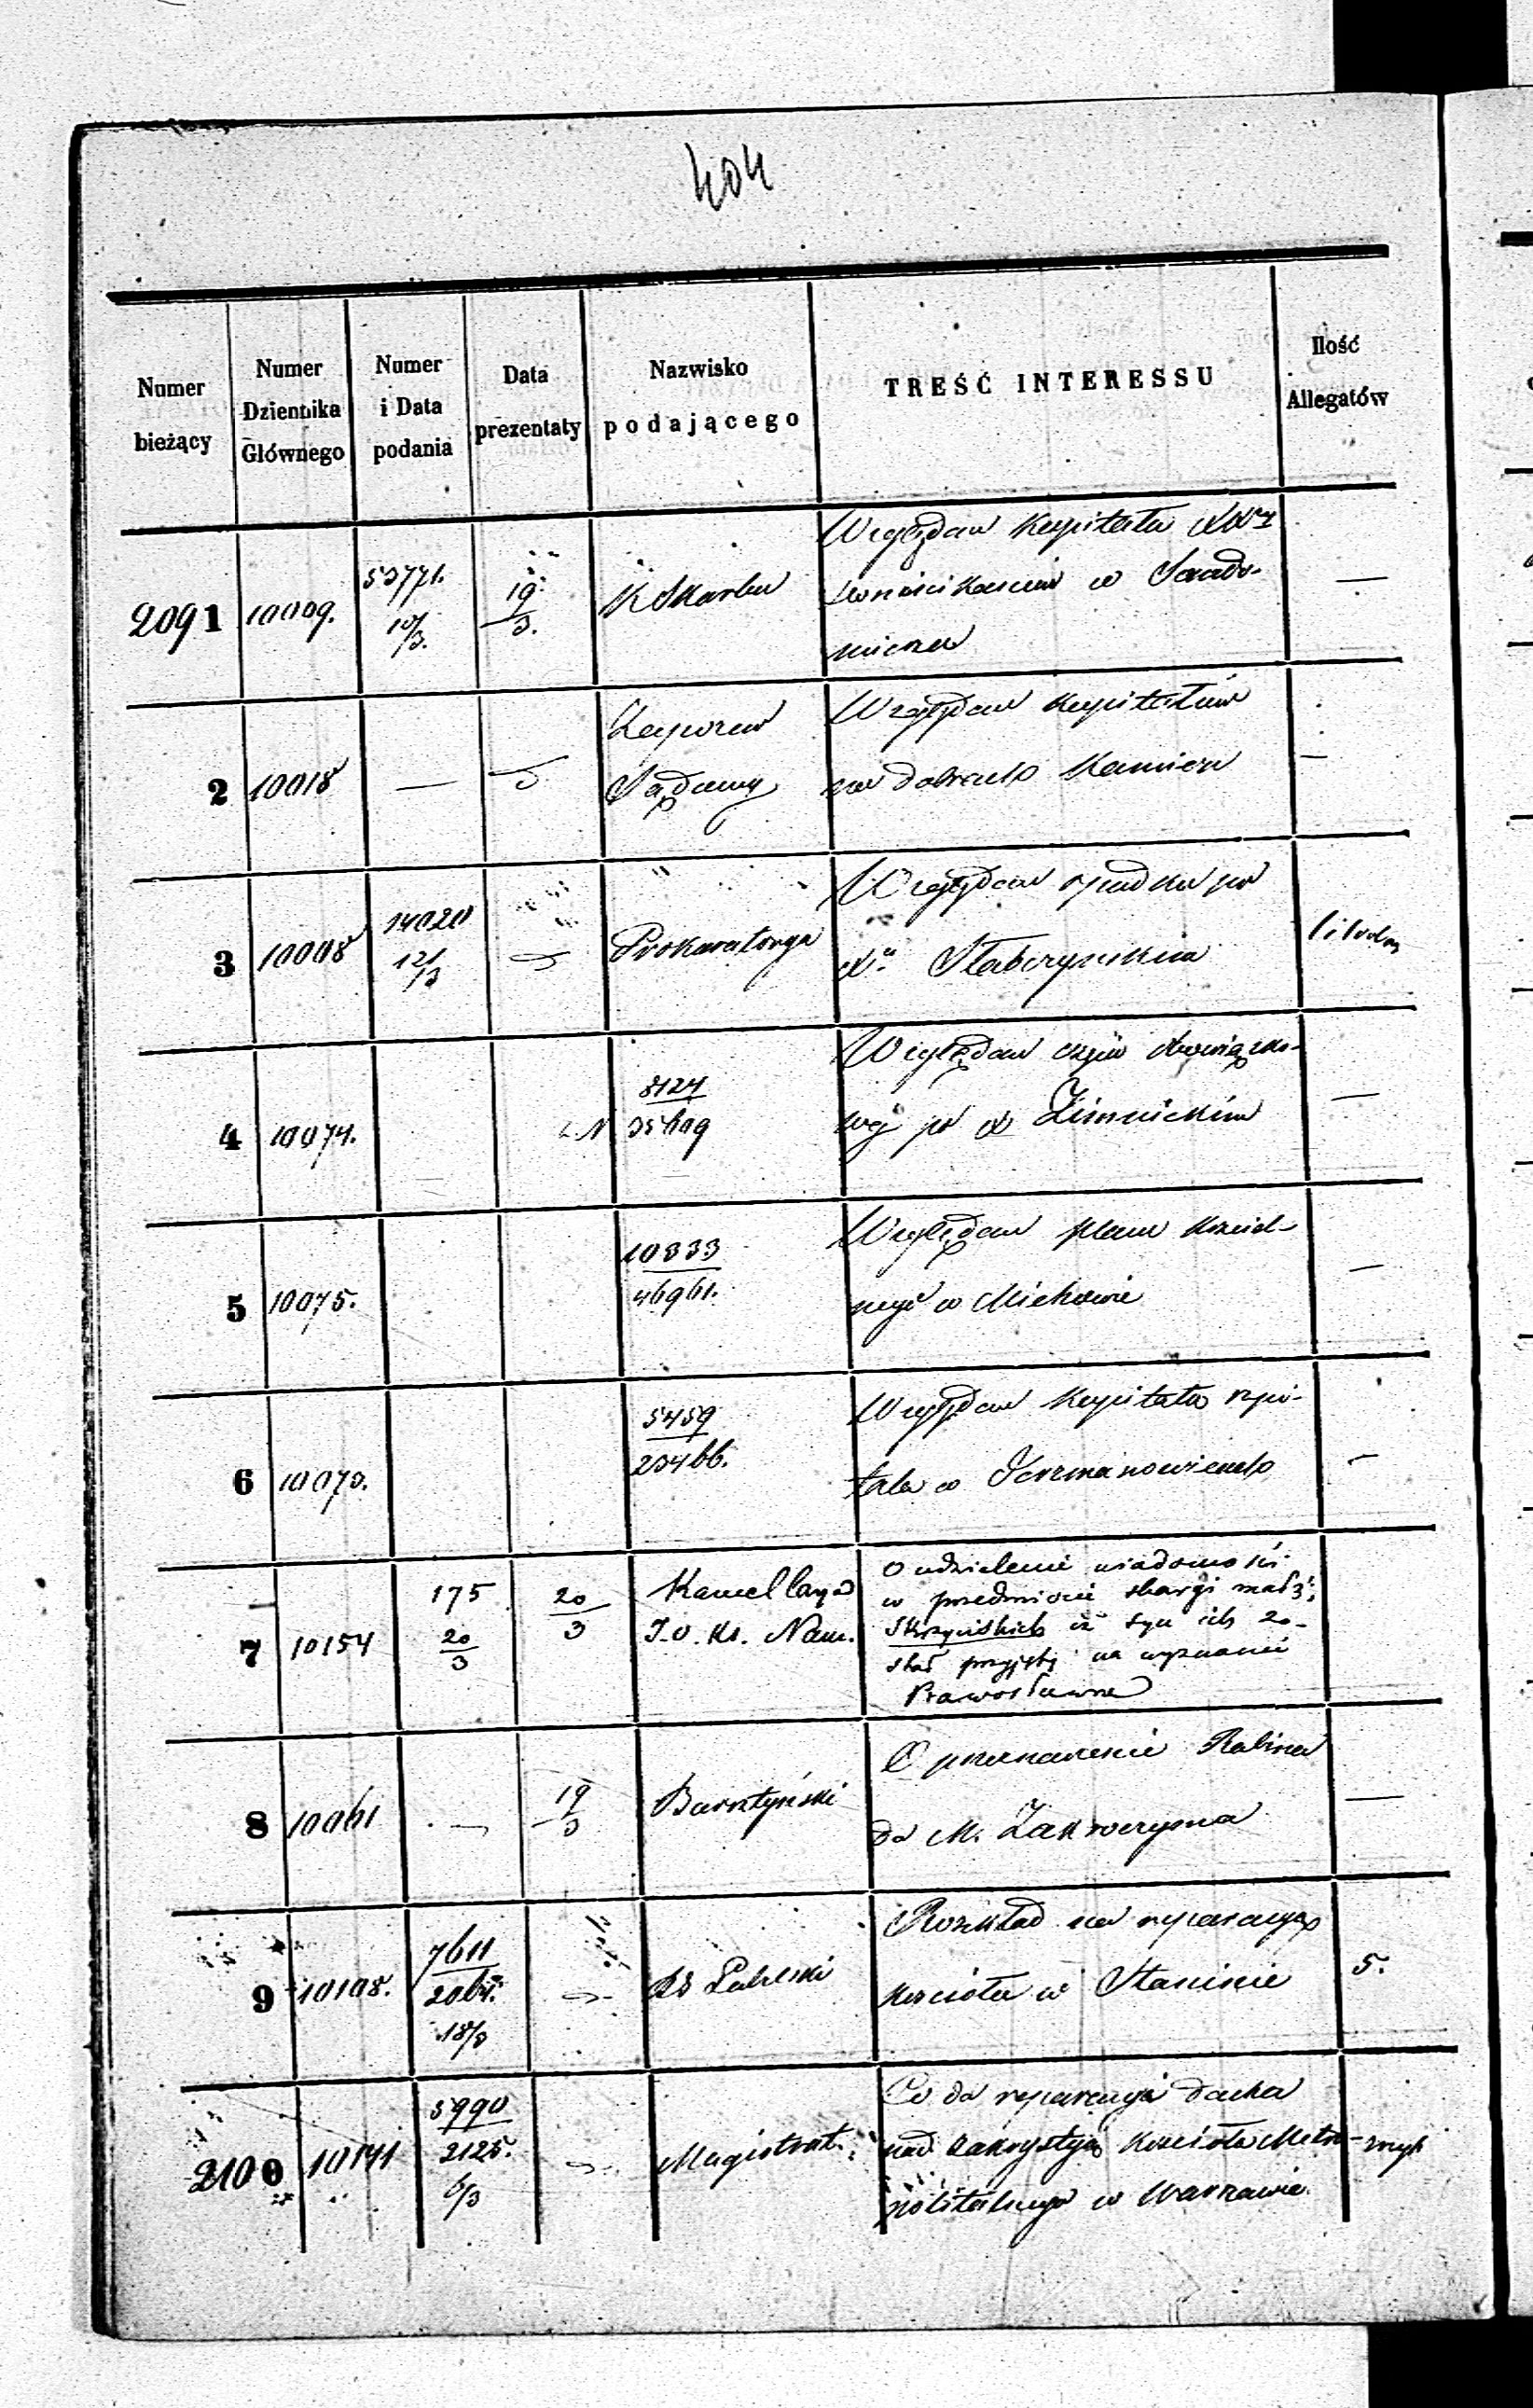 404
Numer bieżący
Numer Dziennika Głównego
Numer i Data podania
Data prezentaty
Nazwisko podającego
TREŚĆ INTERESSU
Ilość Allegatów
2091 10009. 53771. 10/3. 19/3. K Skarbu
Względem Kapitału
w Sando-
mierzu
—
2 10018 —
Sądowy
Względem Kapitałów
na dobrach Kamień
—
3 10008 14020 12/3 Prokuratorya
Względem spadku po
Xu Słabczyńskim
4 10074. 8124
35609
Względem
po X Zimnickim
—
5 10075. 10333
46961.
Względem placu kościel-
nego w Miechowie
—
6 10073. 5459
23466.
Względem Kapitału szpi-
tala w Jerzmanowicach
—
7 10154 175 20/3 20/3 Kancellarya
J.O. Ks. Nam.
O udzielenie wiadomości
w przedmiocie skargi małż:
Skrzycińskich iż syn ich zo-
stał przyjęty na wyznanie
Prawosławne
8 10061 — 19/3 Bursztyński
O przeznaczenie Rabina
do M. Zakroczyma
—
9 10108. 7611
2064.
18/3
RG Lubelski
Rozkład na reparacyę
kościoła w Staninie
5.
2100 10141 5990
2125.
6/3
Magistrat
Co do reparacyi dachu
nad zakrystyą Kościoła Metro-
politalnego w Warszawie.